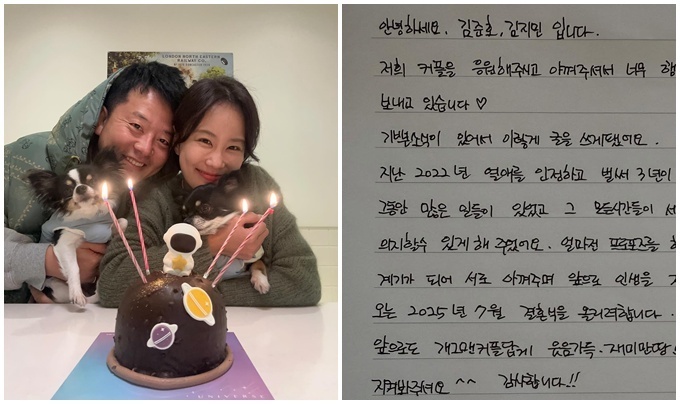 LONDON NORTH EASTERN
RAILWAY CO.
UNIVERSE
안녕하세요. 김준호, 김지민 입니다.
저희 커플을 응원해주시고 아껴주셔서 너무
보내고 있습니다 ♡
기쁜소식이 있어서 이렇게 글을 쓰게됐어요.
지난 2022년 열애를 인정하고 벌써 3년이
그동안 많은 일들이 있었고 그 모든시간들이
의지할수 있게 해 주었어요. 얼마전 프로포즈를
계기가 되어 서로 아껴주며 앞으로 인생을
오는 2025년 7월 결혼식을 올리려합니다.
앞으로도 개그맨커플답게 웃음가득. 재미만땅
지켜봐주세요 ^^ 감사합니다!!